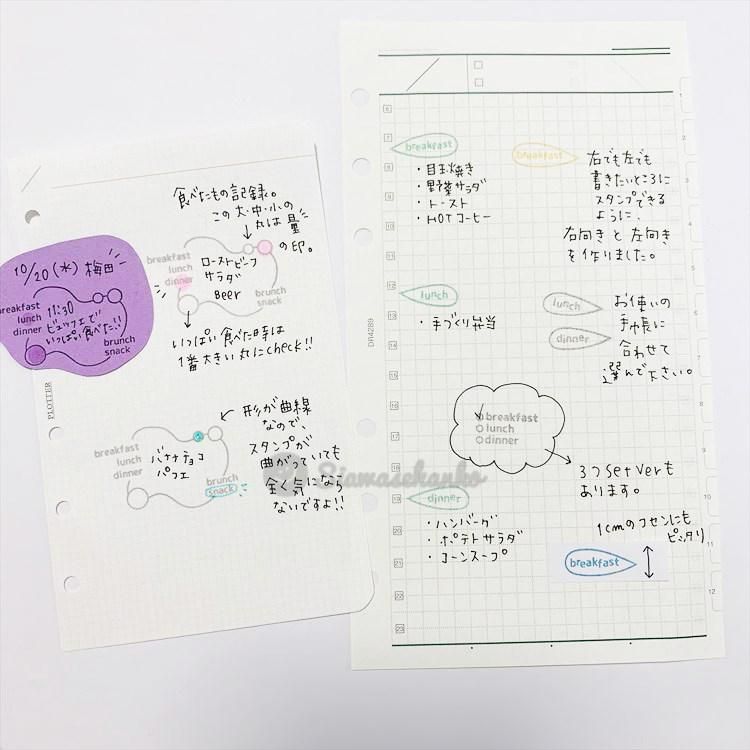 食べたもの記録。
この大・中・小の
丸は量
の印。
breakfast
lunch
dinner
ローストビーフ
サラダ
Beer
brunch
snack
10/20(水)梅田
breakfast
lunch
dinner
11:30
ビュッフェで
いっぱい食べた!!
brunch
snack
いっぱい食べた時は
1番大きい丸にcheck!!
PLOTTER
breakfast
lunch
dinner
バナナチョコ
パフェ
brunch
snack
形が曲線
なので、
スタンプが
曲がっていても
全く気になら
ないですよ!!
Siawasehanko
6
7
8
9
10
11
12
13
14
15
16
17
18
19
20
21
22
23
1
2
3
4
5
6
7
8
9
10
11
12
DR4289
breakfast
・目玉焼き
・野菜サラダ
・トースト
・HOTコーヒー
breakfast
右でも左でも
書きたいところに
スタンプできる
ように、
右向きと左向き
を作りました。
lunch
・手づくり弁当
lunch
dinner
お使いの
手帳に
合わせて
選んで下さい。
breakfast
lunch
dinner
3つset verも
あります。
dinner
・ハンバーグ
・ポテトサラダ
・コーンスープ
1cmのフセンにも
ピッタリ
breakfast